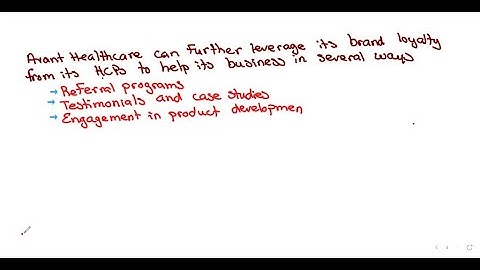 Avant Healthcare can further leverage its brand loyalty
from its HCPs to help its business in several ways
→ Referral programs
→ Testimonials and case studies
→ Engagement in product developmen